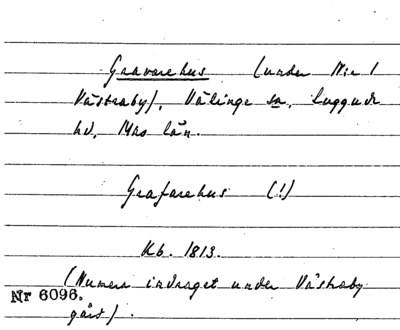 Gravarehus (under N:r 1
Västraby), Välinge sn, Luggude
hd, Mlhs län.
Grafarehus (!)
Kb. 1813.
(Numera indraget under Västraby
Nr 6096.
gård).